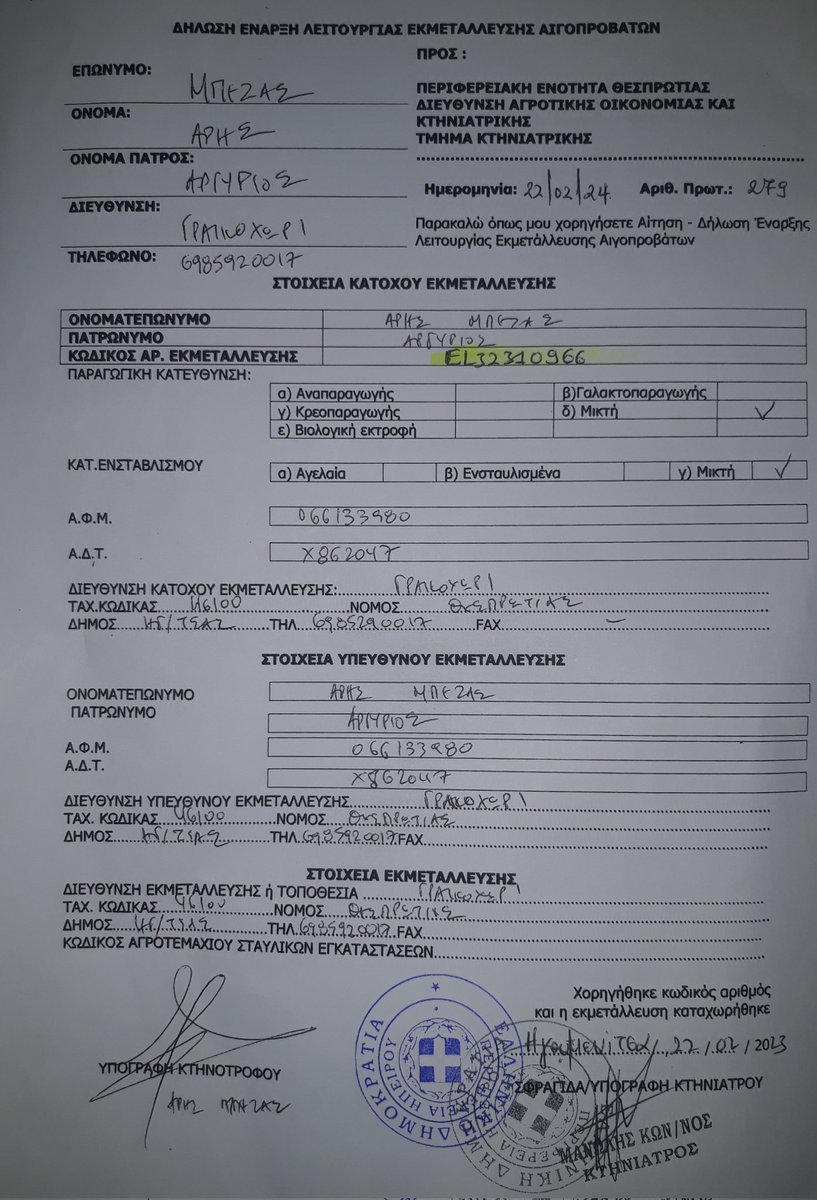 ΔΗΛΩΣΗ ΕΝΑΡΞΗ ΛΕΙΤΟΥΡΓΙΑΣ ΕΚΜΕΤΑΛΛΕΥΣΗΣ ΑΙΓΟΠΡΟΒΑΤΩΝ
ΕΠΩΝΥΜΟ: ΜΠΕΖΑΣ
ΟΝΟΜΑ: ΑΡΗΣ
ΟΝΟΜΑ ΠΑΤΡΟΣ: ΑΡΓΥΡΙΟΣ
ΔΙΕΥΘΥΝΣΗ: ΓΡΑΙΚΟΧΩΡΙ
ΤΗΛΕΦΩΝΟ: 6985920017
ΠΡΟΣ :
ΠΕΡΙΦΕΡΕΙΑΚΗ ΕΝΟΤΗΤΑ ΘΕΣΠΡΩΤΙΑΣ
ΔΙΕΥΘΥΝΣΗ ΑΓΡΟΤΙΚΗΣ ΟΙΚΟΝΟΜΙΑΣ ΚΑΙ
ΚΤΗΝΙΑΤΡΙΚΗΣ
ΤΜΗΜΑ ΚΤΗΝΙΑΤΡΙΚΗΣ
Ημερομηνία: 22/02/24. Αριθ. Πρωτ.: 279
Παρακαλώ όπως μου χορηγήσετε Αίτηση - Δήλωση Έναρξης
Λειτουργίας Εκμετάλλευσης Αιγοπροβάτων
ΣΤΟΙΧΕΙΑ ΚΑΤΟΧΟΥ ΕΚΜΕΤΑΛΛΕΥΣΗΣ
ΟΝΟΜΑΤΕΠΩΝΥΜΟ ΑΡΗΣ ΜΠΕΖΑΣ
ΠΑΤΡΩΝΥΜΟ ΑΡΓΥΡΙΟΣ
ΚΩΔΙΚΟΣ ΑΡ. ΕΚΜΕΤΑΛΛΕΥΣΗΣ EL32310966
ΠΑΡΑΓΩΓΙΚΗ ΚΑΤΕΥΘΥΝΣΗ:
α) Αναπαραγωγής β)Γαλακτοπαραγωγής
γ) Κρεοπαραγωγής δ) Μικτή ✓
ε) Βιολογική εκτροφή
ΚΑΤ.ΕΝΣΤΑΒΛΙΣΜΟΥ α) Αγελαία β) Ενσταυλισμένα γ) Μικτή ✓
Α.Φ.Μ. 066133980
Α.Δ.Τ. Χ862047
ΔΙΕΥΘΥΝΣΗ ΚΑΤΟΧΟΥ ΕΚΜΕΤΑΛΛΕΥΣΗΣ: ΓΡΑΙΚΟΧΩΡΙ
ΤΑΧ.ΚΩΔΙΚΑΣ 46100 ΝΟΜΟΣ ΘΕΣΠΡΩΤΙΑΣ
ΔΗΜΟΣ ΗΓ/ΤΣΑΣ ΤΗΛ 6985290017 FAX —
ΣΤΟΙΧΕΙΑ ΥΠΕΥΘΥΝΟΥ ΕΚΜΕΤΑΛΛΕΥΣΗΣ
ΟΝΟΜΑΤΕΠΩΝΥΜΟ ΑΡΗΣ ΜΠΕΖΑΣ
ΠΑΤΡΩΝΥΜΟ ΑΡΓΥΡΙΟΣ
Α.Φ.Μ. 066133980
Α.Δ.Τ. Χ862047
ΔΙΕΥΘΥΝΣΗ ΥΠΕΥΘΥΝΟΥ ΕΚΜΕΤΑΛΛΕΥΣΗΣ ΓΡΑΙΚΟΧΩΡΙ
ΤΑΧ. ΚΩΔΙΚΑΣ 46100 ΝΟΜΟΣ ΘΕΣΠΡΩΤΙΑΣ
ΔΗΜΟΣ ΗΓ/ΤΣΑΣ ΤΗΛ. 6985920017 FAX
ΣΤΟΙΧΕΙΑ ΕΚΜΕΤΑΛΛΕΥΣΗΣ
ΔΙΕΥΘΥΝΣΗ ΕΚΜΕΤΑΛΛΕΥΣΗΣ ή ΤΟΠΟΘΕΣΙΑ ΓΡΑΙΚΟΧΩΡΙ
ΤΑΧ. ΚΩΔΙΚΑΣ 46100 ΝΟΜΟΣ ΘΕΣΠΡΩΤΙΑΣ
ΔΗΜΟΣ ΗΓ/ΤΣΑΣ ΤΗΛ 6985920017 FAX
ΚΩΔΙΚΟΣ ΑΓΡΟΤΕΜΑΧΙΟΥ ΣΤΑΥΛΙΚΩΝ ΕΓΚΑΤΑΣΤΑΣΕΩΝ
Χορηγήθηκε κωδικός αριθμός
και η εκμετάλλευση καταχωρήθηκε
Ηγουμενίτσα, 22/02/2023
ΥΠΟΓΡΑΦΗ ΚΤΗΝΟΤΡΟΦΟΥ
ΑΡΗΣ ΜΠΕΖΑΣ
ΕΛΛΗΝΙΚΗ ΔΗΜΟΚΡΑΤΙΑ
ΠΕΡΙΦΕΡΕΙΑ ΗΠΕΙΡΟΥ
ΣΦΡΑΓΙΔΑ/ΥΠΟΓΡΑΦΗ ΚΤΗΝΙΑΤΡΟΥ
ΚΩΝ/ΝΟΣ
ΚΤΗΝΙΑΤΡΟΣ